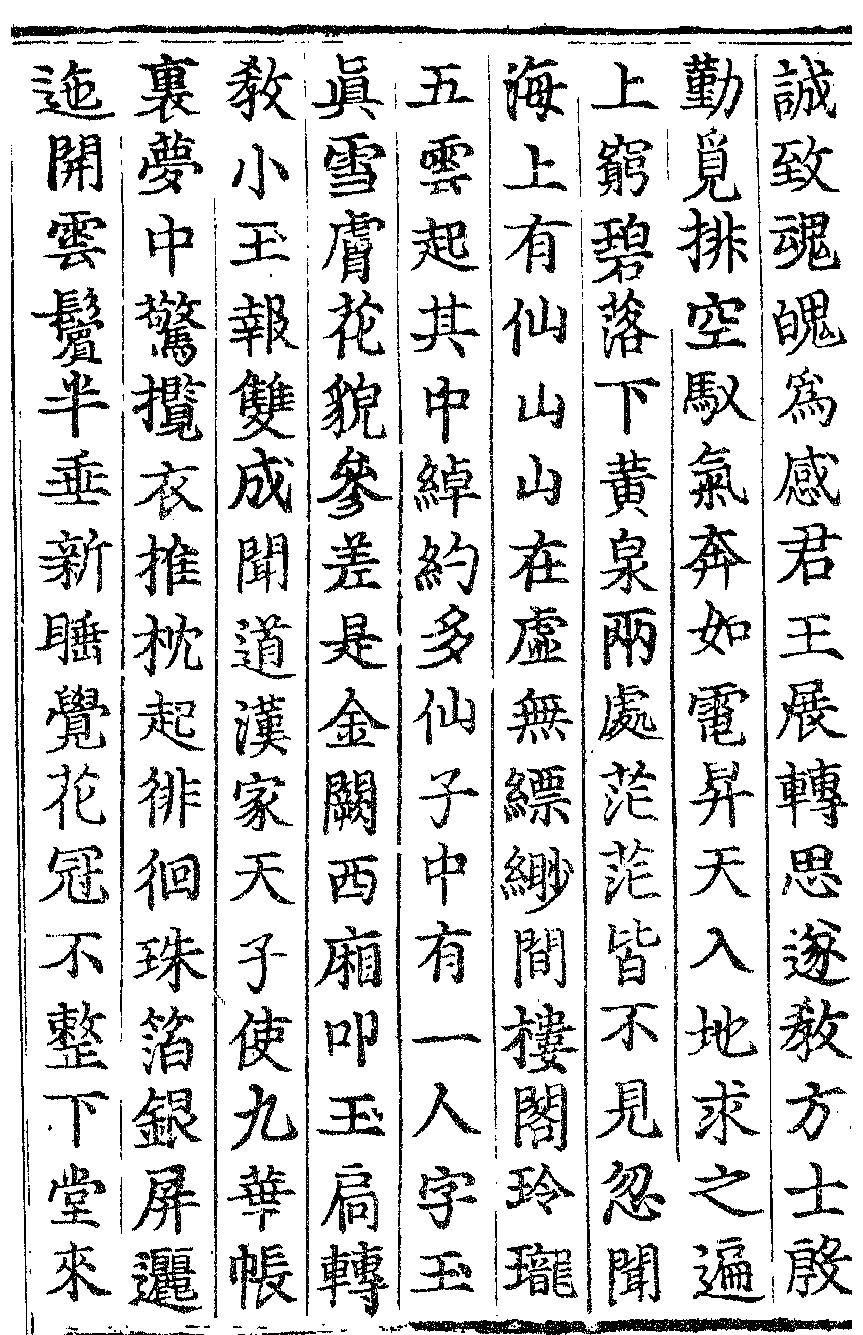 誠致魂魄爲感君王展轉思遂教方士殷
勤覓排空馭氣奔如電昇天入地求之遍
上窮碧落下黄泉兩處茫茫皆不見忽聞
海上有仙山山在虛無縹緲間樓閣玲瓏
五雲起其中綽約多仙子中有一人字玉
眞雪膚花貌參差是金闕西廂叩玉扃轉
敎小玉報雙成聞道漢家天子使九華帳
裏夢中驚攬衣推枕起徘徊珠箔銀屏邐
迤開雲鬢半垂新睡覺花冠不整下堂來